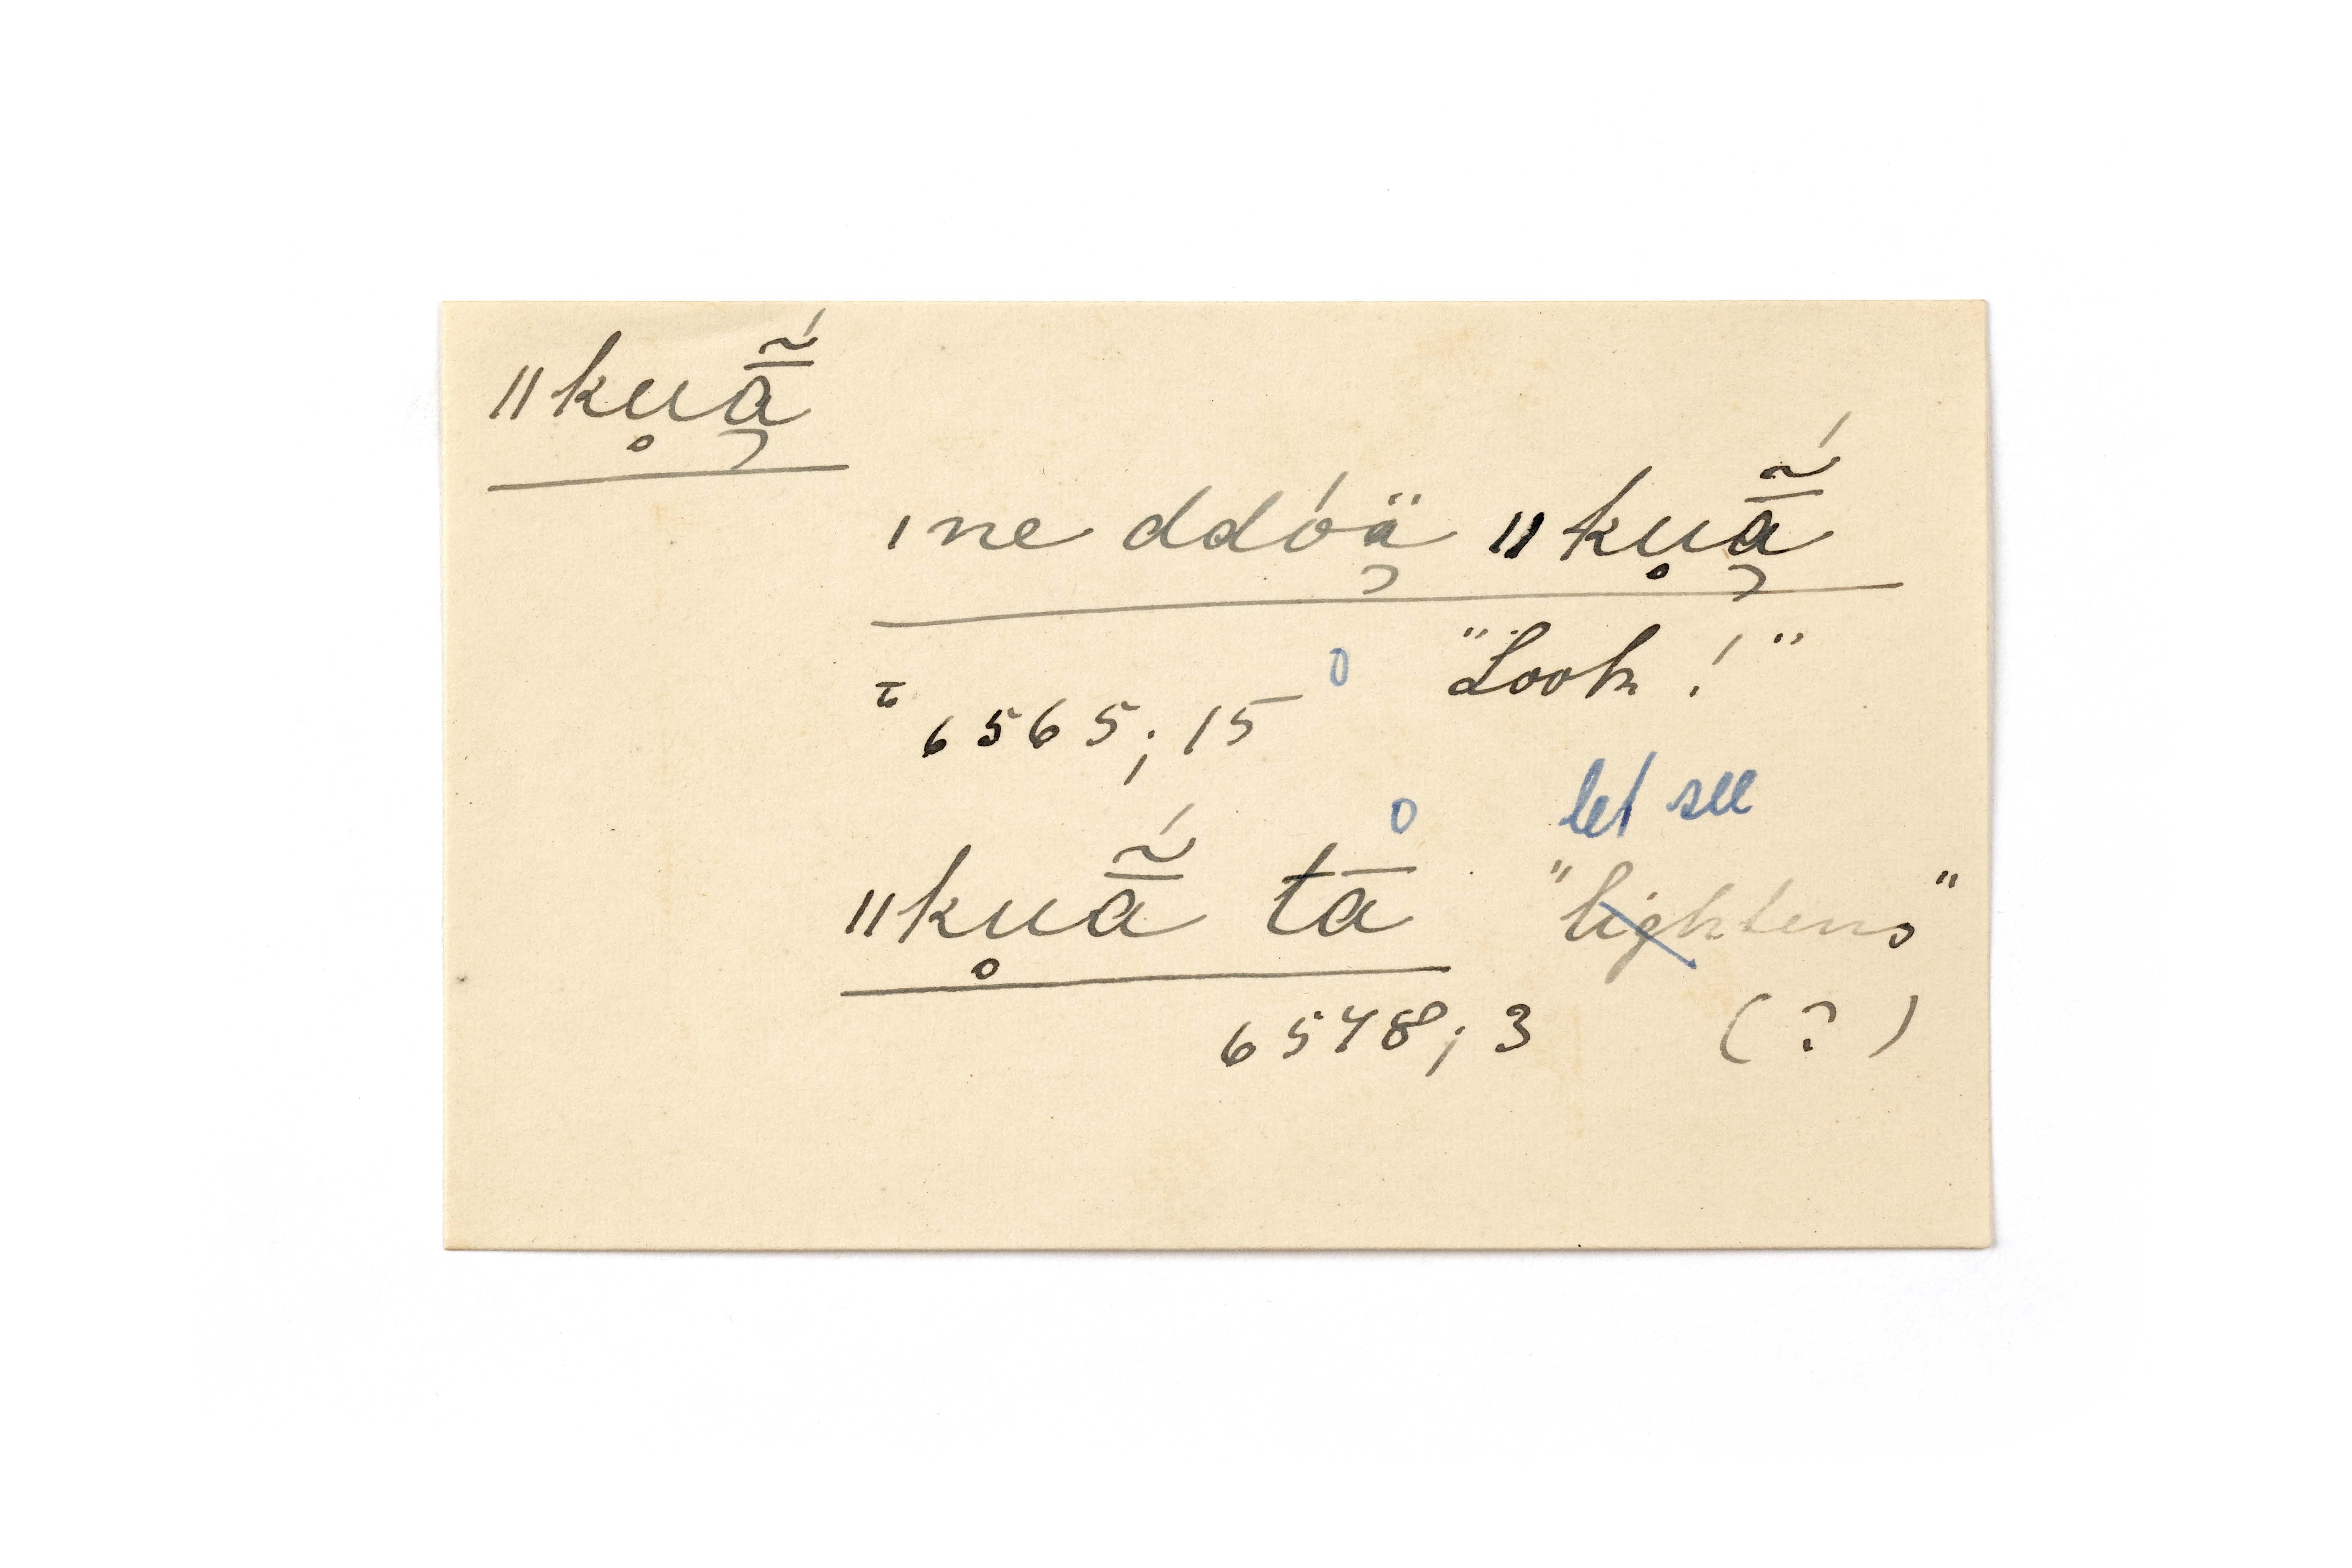 ǁku̥ā̰̃́
ǀne ddóä̰ ǁku̥ā̰̃́
"Look!"
6565; 15
let see
ǁku̥ā̃́ tā "lightens"
6548; 3 (?)